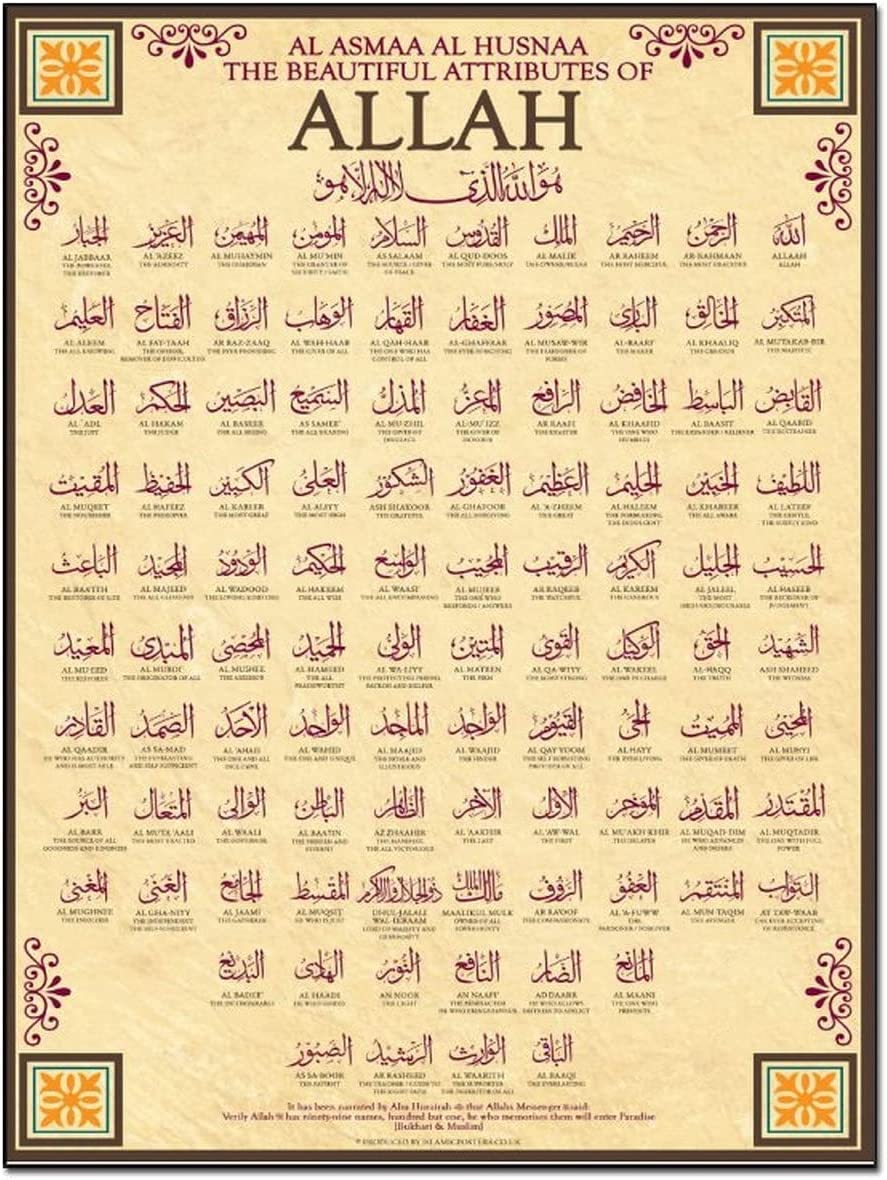 AL ASMAA AL HUSNAA
THE BEAUTIFUL ATTRIBUTES OF
ALLAH
هو الله الذي لا اله الا هو
الله
ALLAAH
ALLAH
الرحمن
AR-RAHMAAN
THE MOST GRACIOUS
الرحيم
AR RAHEEM
THE MOST MERCIFUL
الملك
AL MALIK
القدوس
AL QUD-DOOS
THE MOST PURE/HOLY
السلام
AS SALAAM
THE SOURCE / GIVER
OF PEACE
المؤمن
AL MU'MIN
المهيمن
AL MUHAYMIN
THE GUARDIAN
العزيز
AL 'AZEEZ
THE ALMIGHTY
الجبار
AL JABBAAR
المتكبر
AL MUTAKAB-BIR
THE MAJESTIC
الخالق
AL KHAALIQ
THE CREATOR
البارئ
AL-BAARI'
THE MAKER
المصور
AL MUSAW-WIR
THE FASHIONER OF
FORMS
الغفار
AL-GHAFFAAR
THE EVER FORGIVING
القهار
AL QAH-HAAR
THE ONE WHO HAS
CONTROL OF ALL
الوهاب
AL WAH-HAAB
THE GIVER OF ALL
الرزاق
AR RAZ-ZAAQ
THE EVER PROVIDING
الفتاح
AL FAT-TAAH
THE OPENER,
REMOVER OF DIFFICULTIES
العليم
AL ALEEM
THE ALL KNOWING
القابض
AL QAABID
THE RESTRAINER
الباسط
AL BAASIT
THE EXPANDER / RELIEVER
الخافض
AL KHAAFID
THE ONE WHO
HUMBLES
الرافع
AR RAAFI
THE EXALTER
المعز
AL-MU'IZZ
THE GIVER OF
HONOUR
المذل
AL MU-ZHIL
THE GIVER OF
DISGRACE
السميع
AS SAMEE'
THE ALL HEARING
البصير
AL BASEER
THE ALL SEEING
الحكم
AL HAKAM
THE JUDGE
العدل
AL 'ADL
THE JUST
اللطيف
AL LATEEF
THE GENTLE,
THE SUBTLY KIND
الخبير
AL KHABEER
THE ALL AWARE
الحليم
AL HALEEM
THE FORBEARING,
THE INDULGENT
العظيم
AL 'A-ZHEEM
THE GREAT
الغفور
AL GHAFOOR
THE ALL FORGIVING
الشكور
ASH SHAKOOR
THE GRATEFUL
العلي
AL ALIYY
THE MOST HIGH
الكبير
AL KABEER
THE MOST GREAT
الحفيظ
AL HAFEEZ
THE PRESERVER
المقيت
AL MUQEET
THE NOURISHER
الحسيب
AL HASEEB
THE RECKONER OF
JUDGEMENT
الجليل
AL JALEEL
THE MOST
الكريم
AL KAREEM
THE GENEROUS
الرقيب
AR RAQEEB
THE WATCHFUL
المجيب
AL MUJEEB
THE ONE WHO
RESPONDS / ANSWERS
الواسع
AL WAASI'
THE ALL ENCOMPASSING
الحكيم
AL HAKEEM
THE ALL WISE
الودود
AL WADOOD
المجيد
AL MAJEED
الباعث
AL BAA'ITH
الشهيد
ASH SHAHEED
THE WITNESS
الحق
AL-HAQQ
THE TRUTH
الوكيل
AL WAKEEL
THE ONE IN CHARGE
القوي
AL QA-WIYY
THE MOST STRONG
المتين
AL MATEEN
THE FIRM
الولي
AL WA-LIYY
الحميد
AL HAMEED
THE ALL
PRAISEWORTHY
المحصي
AL MUHSEE
المبدئ
AL MUBDI'
THE ORIGINATOR OF ALL
المعيد
AL MU'EED
THE RESTORER
المحيي
AL MUHYI
THE GIVER OF LIFE
المميت
AL MUMEET
THE GIVER OF DEATH
الحي
AL HAYY
THE EVER LIVING
القيوم
AL QAY YOOM
THE SELF SUBSISTING
PROVIDER OF ALL
الواجد
AL WAAJID
THE FINDER
الماجد
AL MAAJID
THE NOBLE AND
ILLUSTRIOUS
الواحد
AL WAHID
THE ONE AND UNIQUE
الاحد
AL 'AHAD
THE ONE AND ALL
INCLUSIVE
الصمد
AS SA-MAD
THE EVERLASTING
AND SELF SUFFICIENT
القادر
AL QAADIR
HE WHO HAS AUTHORITY
AND IS MOST ABLE
المقتدر
AL MUQTADIR
THE ONE WITH FULL
POWER
المقدم
AL MUQAD-DIM
HE WHO ADVANCES
المؤخر
AL MU'AKH KHIR
THE DELAYER
الاول
AL 'AW-WAL
THE FIRST
الاخر
AL 'AAKHIR
THE LAST
الظاهر
AZ ZHAAHIR
THE MANIFEST,
THE ALL VICTORIOUS
الباطن
AL BAATIN
THE HIDDEN AND
الوالي
AL WAALI
THE GOVERNOR
المتعال
AL MUTA 'AALI
THE MOST EXALTED
البر
AL BARR
THE SOURCE OF ALL
GOODNESS AND KINDNESS
التواب
AT TAW-WAAB
THE EVER ACCEPTING
OF REPENTANCE
المنتقم
AL MUN-TAQIM
THE AVENGER
العفو
AL 'A-FUWW
THE
PARDONER / FORGIVER
الرؤوف
AR RA'OOF
THE COMPASSIONATE
مالك الملك
MAALIKUL MULK
OWNER OF ALL
SOVEREIGNTY
ذو الجلال والاكرام
DHUL-JALALI
WAL-IKRAAM
LORD OF MAJESTY AND
GENEROSITY
المقسط
AL MUQSIT
HE WHO IS JUST
الجامع
AL JAAMI
THE GATHERER
الغني
AL GHA-NIYY
THE INDEPENDENT
THE SELF SUFFICIENT
المغني
AL MUGHNEE
THE ENRICHER
المانع
AL MAANI
THE ONE WHO
PREVENTS
الضار
AD DAARR
HE WHO ALLOWS
DISTRESS TO AFFLICT
النافع
AN NAAFI'
THE BENEFACTOR
النور
AN NOOR
THE LIGHT
الهادي
AL HAADI
HE WHO GUIDES
البديع
AL BADEE'
THE INCOMPARABLE
الباقي
AL BAAQI
THE EVERLASTING
الوارث
AL WAARITH
THE INHERITOR OF ALL
الرشيد
AR RASHEED
THE TEACHER / GUIDE TO
THE RIGHT PATH
الصبور
AS SA-BOOR
THE PATIENT
It has been narrated by Abu Hurairah that Allahs Messenger said:
Verily Allah has ninety-nine names, hundred but one, he who memorises them will enter Paradise
[Bukhari & Muslim]
© PRODUCED BY ISLAMICPOSTERS.CO.UK